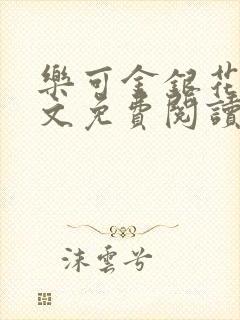 樂可金銀花
文免費閱讀
沫雲兮